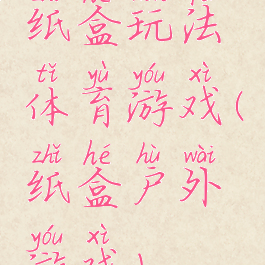 纸盒玩法
tǐ yù yóu xì
体育游戏(
zhǐ hé hù wài
纸盒户外
yóu xì
游戏)